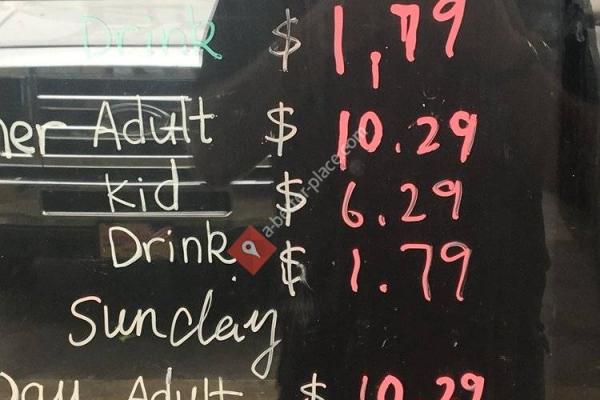 Drink $ 1,79
ner Adult $ 10.29
kid $ 6.29
Drink $ 1.79
Sunday
Day Adult $ 10.29
a-better-place.com